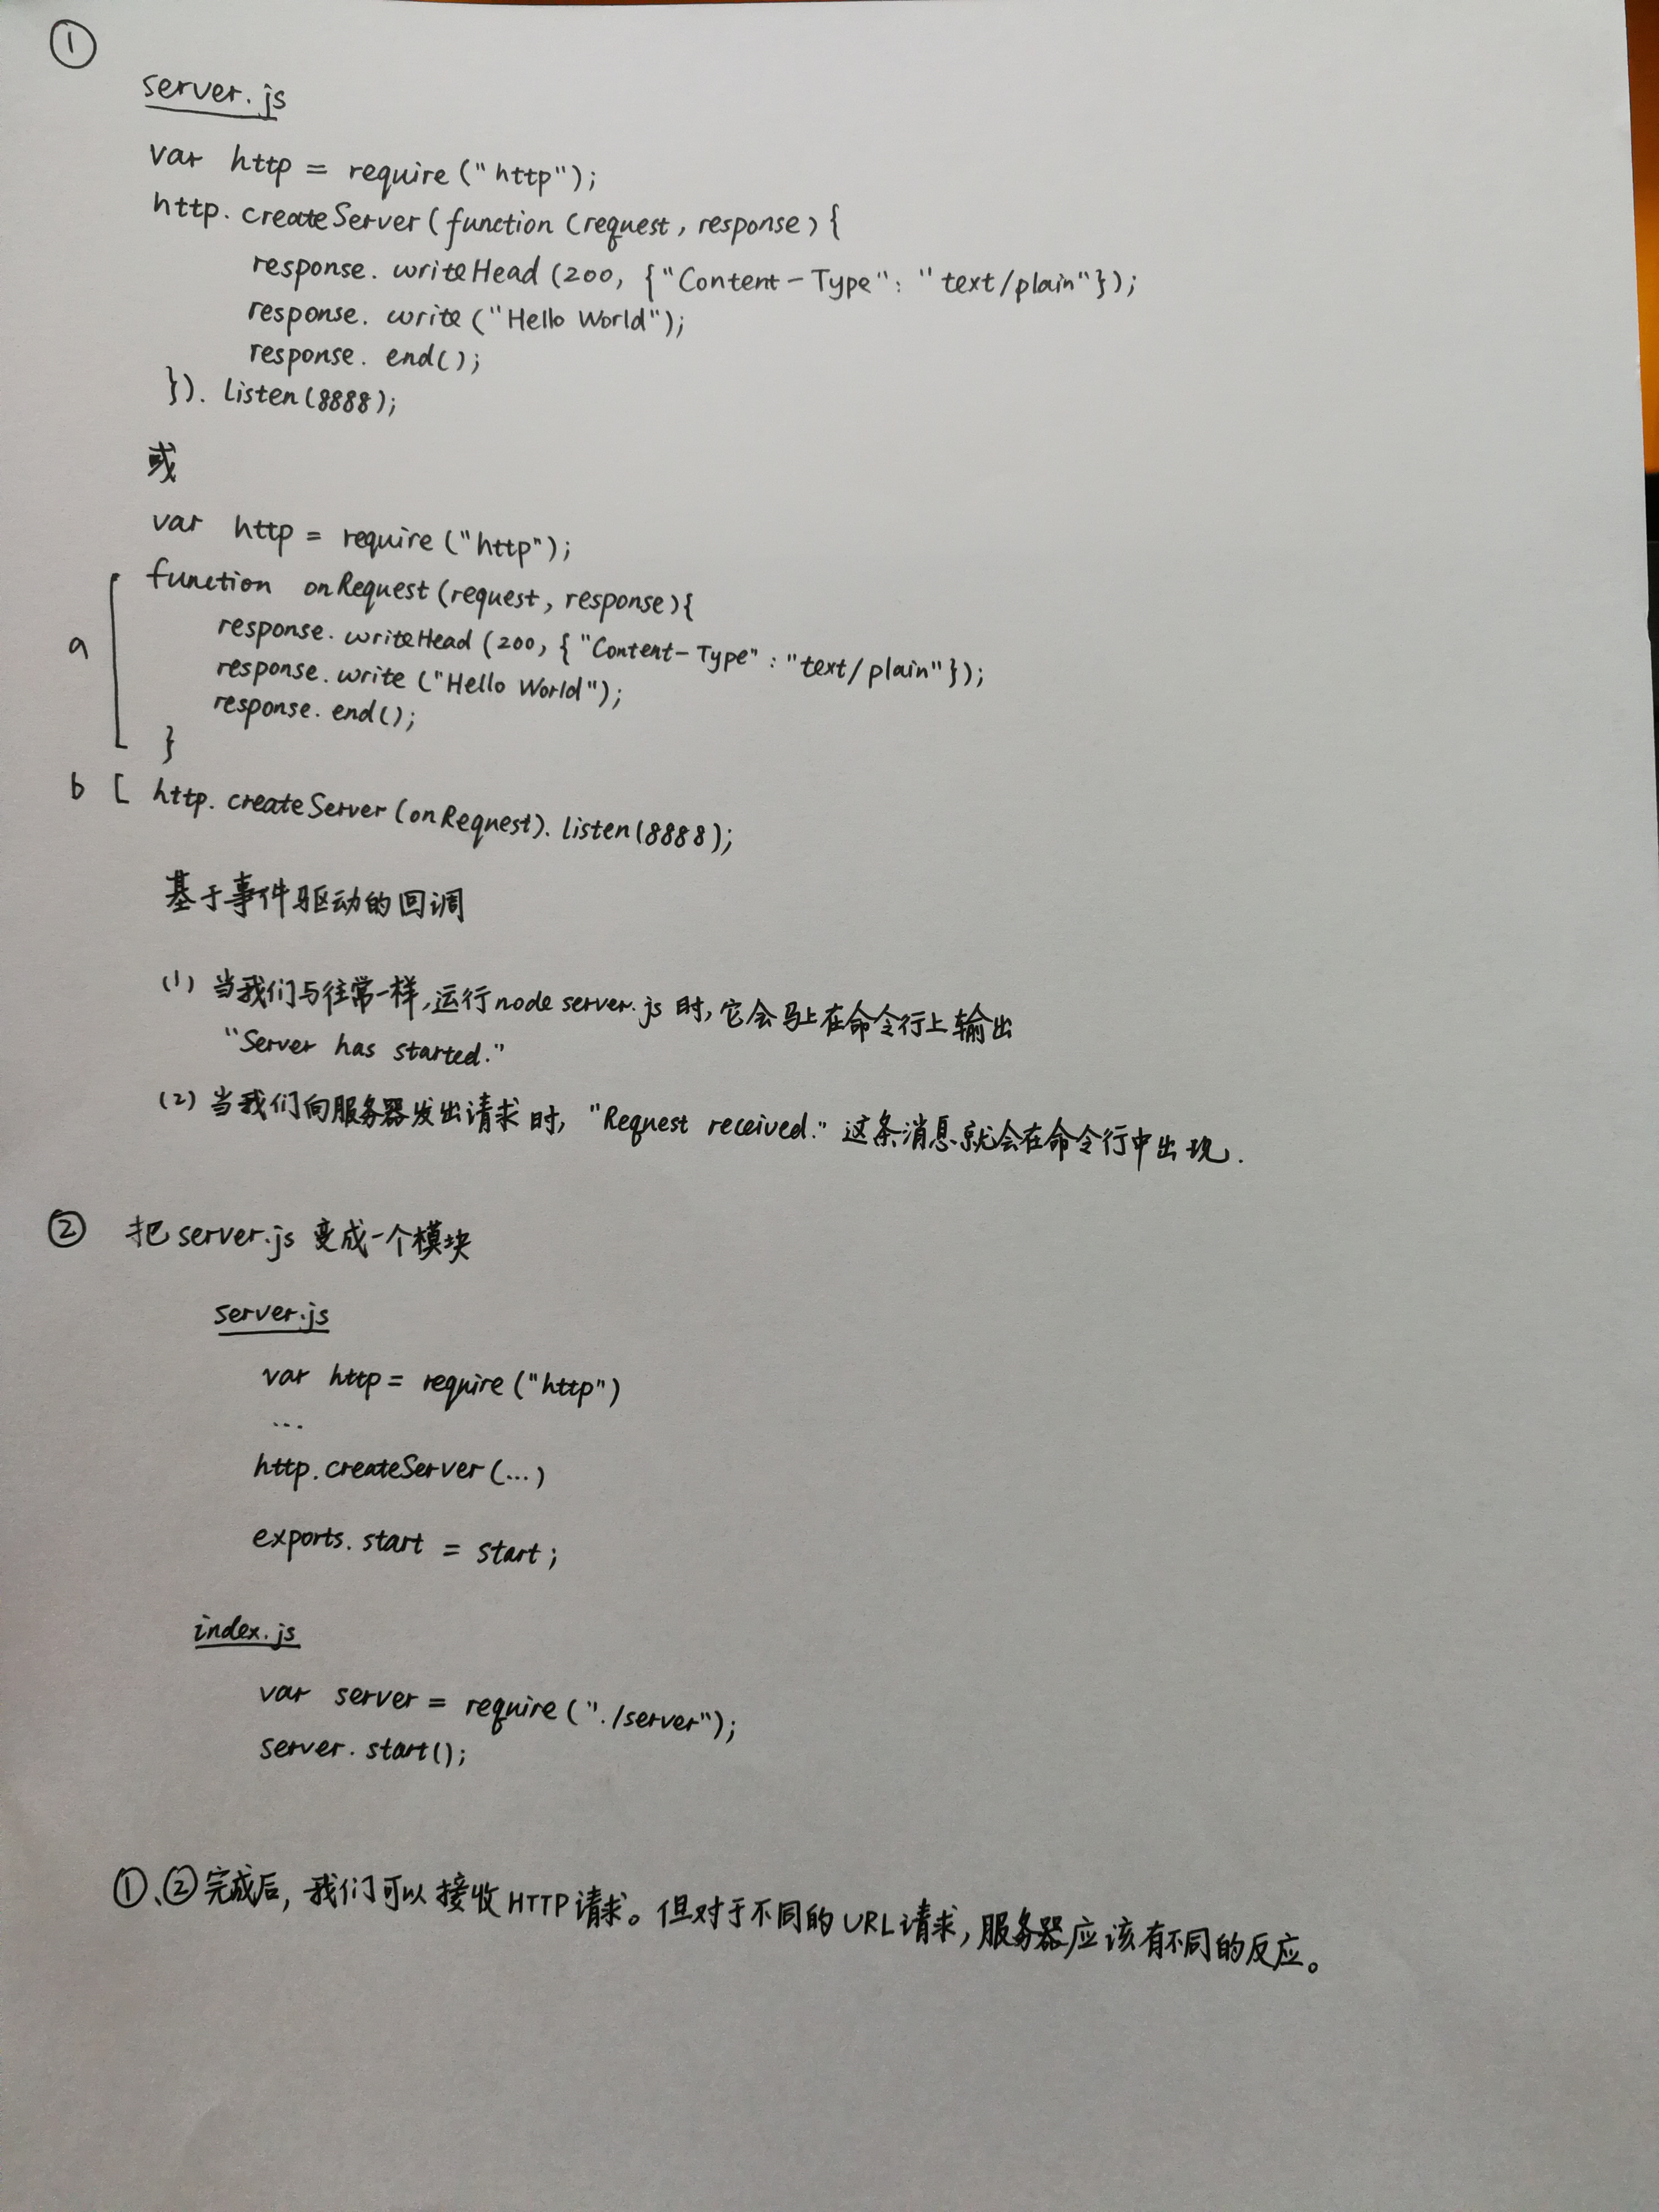 ①
server.js
var http = require("http");
http.createServer(function(request, response){
response.writeHead(200, {"Content-Type": "text/plain"});
response.write("Hello World");
response.end();
}).listen(8888);
或
var http = require("http");
function onRequest(request, response){
a
response.writeHead(200, {"Content-Type": "text/plain"});
response.write("Hello World");
response.end();
}
b [ http.createServer(onRequest).listen(8888);
基于事件驱动的回调
(1) 当我们与往常一样,运行node server.js时,它会马上在命令行上输出
"Server has started."
(2) 当我们向服务器发出请求时, "Request received." 这条消息就会在命令行中出现.
② 把server.js 变成一个模块
server.js
var http = require("http")
...
http.createServer(...)
exports.start = start;
index.js
var server = require("./server");
server.start();
①、②完成后, 我们可以接收HTTP请求。但对于不同的URL请求,服务器应该有不同的反应。